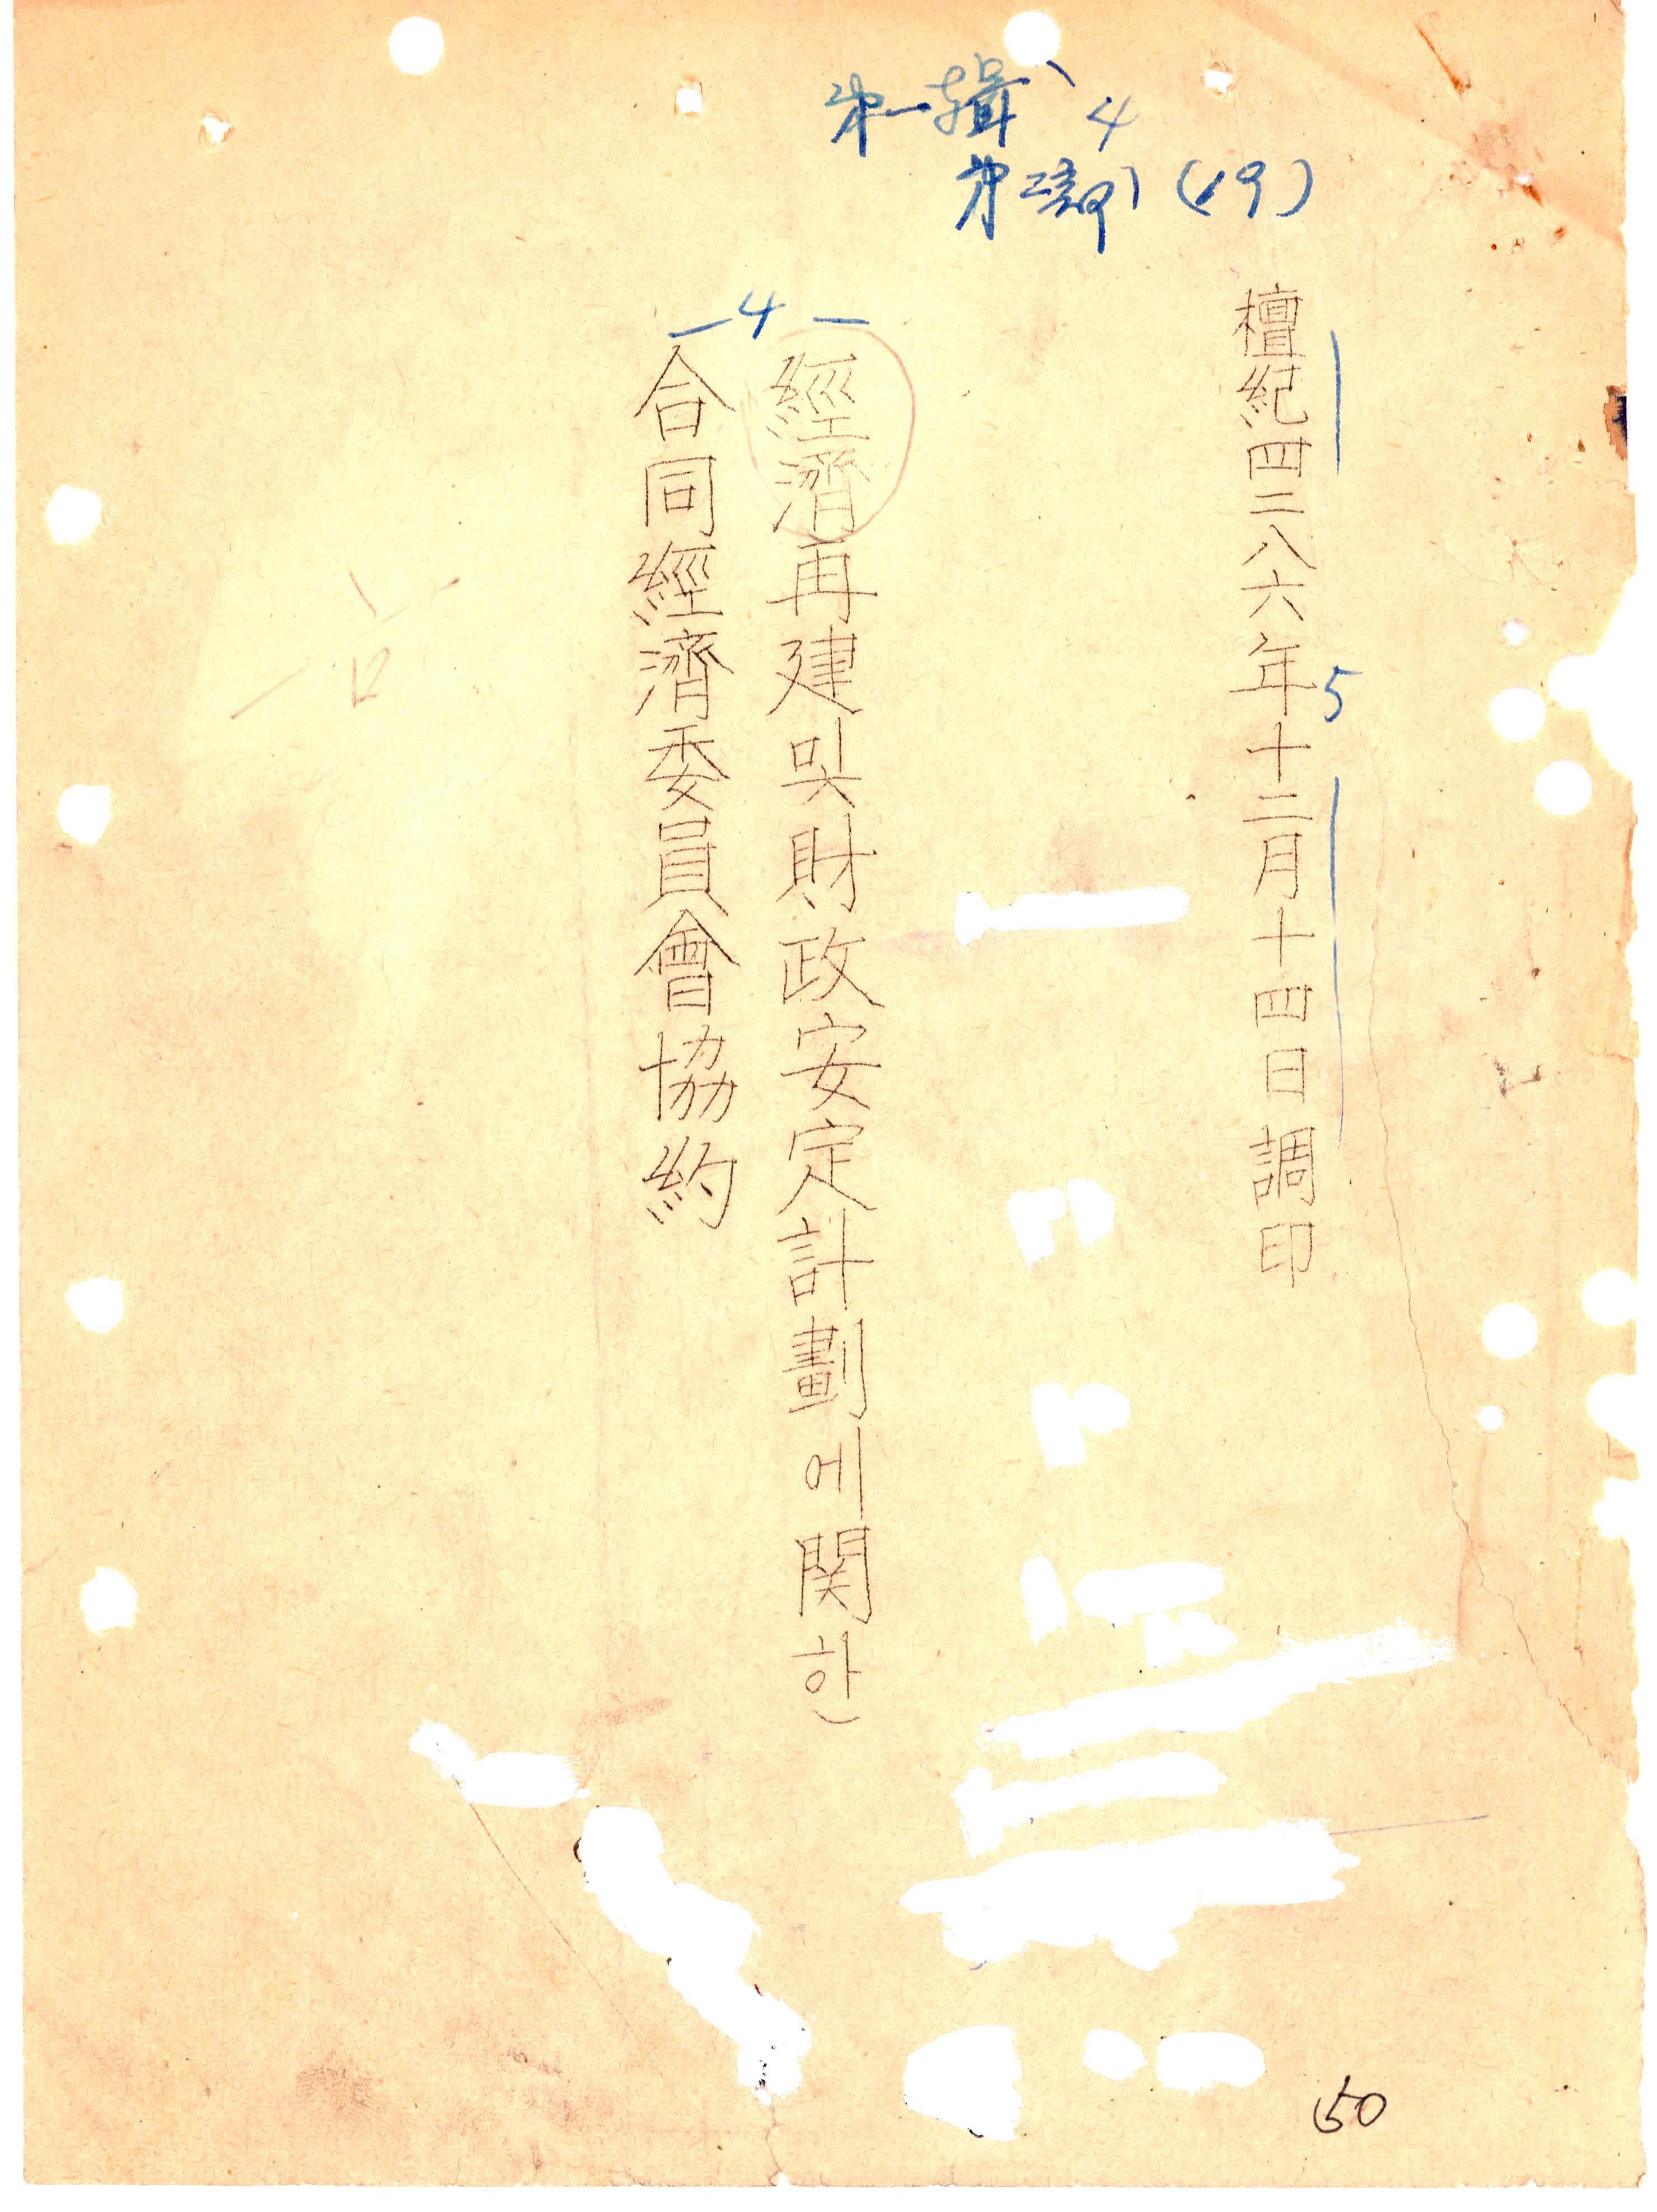 第一輯 4
第二部 (19)
檀紀四二八六年十二月十四日調印
5
4
經濟再建및財政安定計劃에関한
合同經濟委員會協約
50